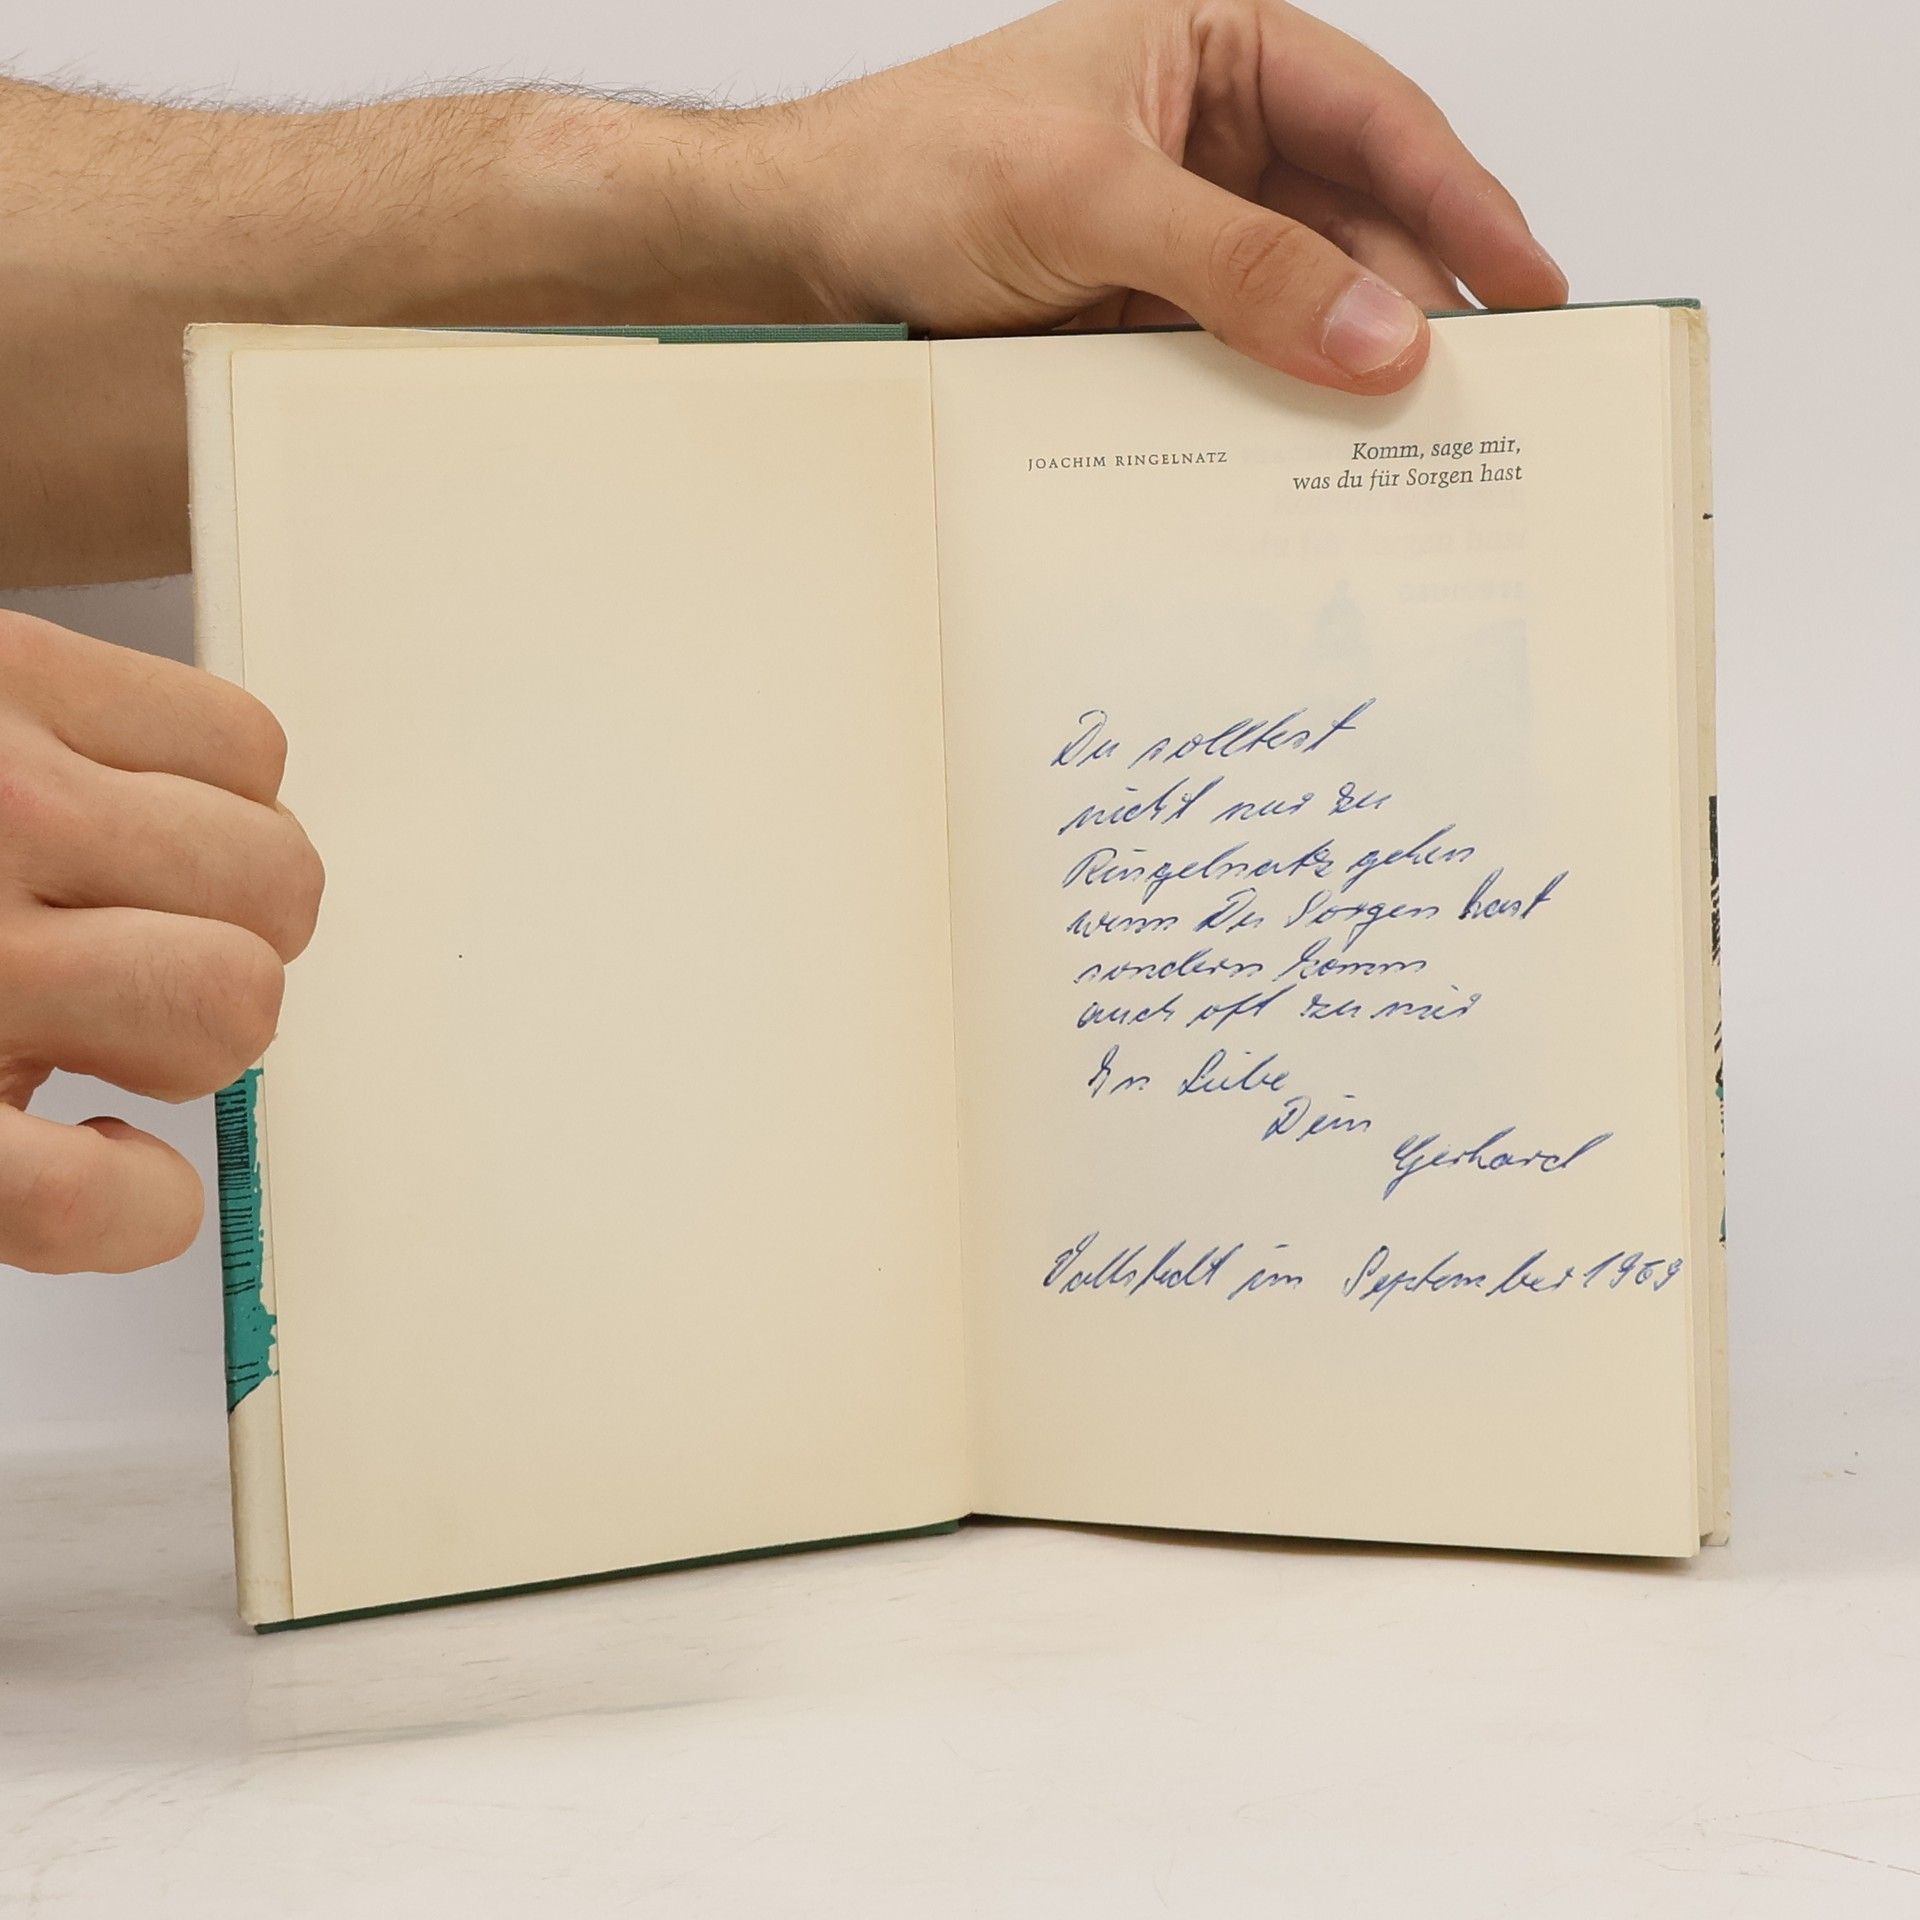 JOACHIM RINGELNATZ
Komm, sage mir,
was du für Sorgen hast
Du solltest
nicht nur zu
Ringelnatz gehen
wenn Du Sorgen hast
sondern komm
auch oft zu mir
In Liebe
Dein
Gerhard
im September 1969